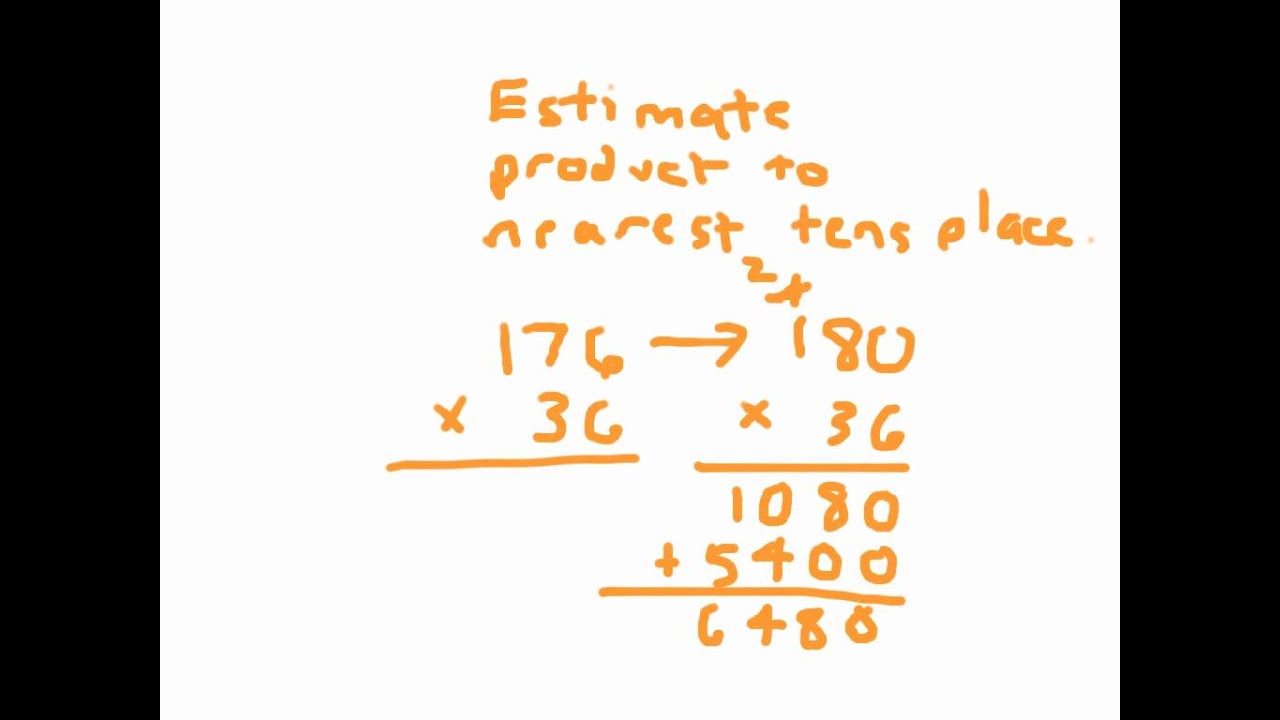 Estimate
product to
nearest tens place.
24
176 → 180
x 36 x 36
1080
+ 5400
6480